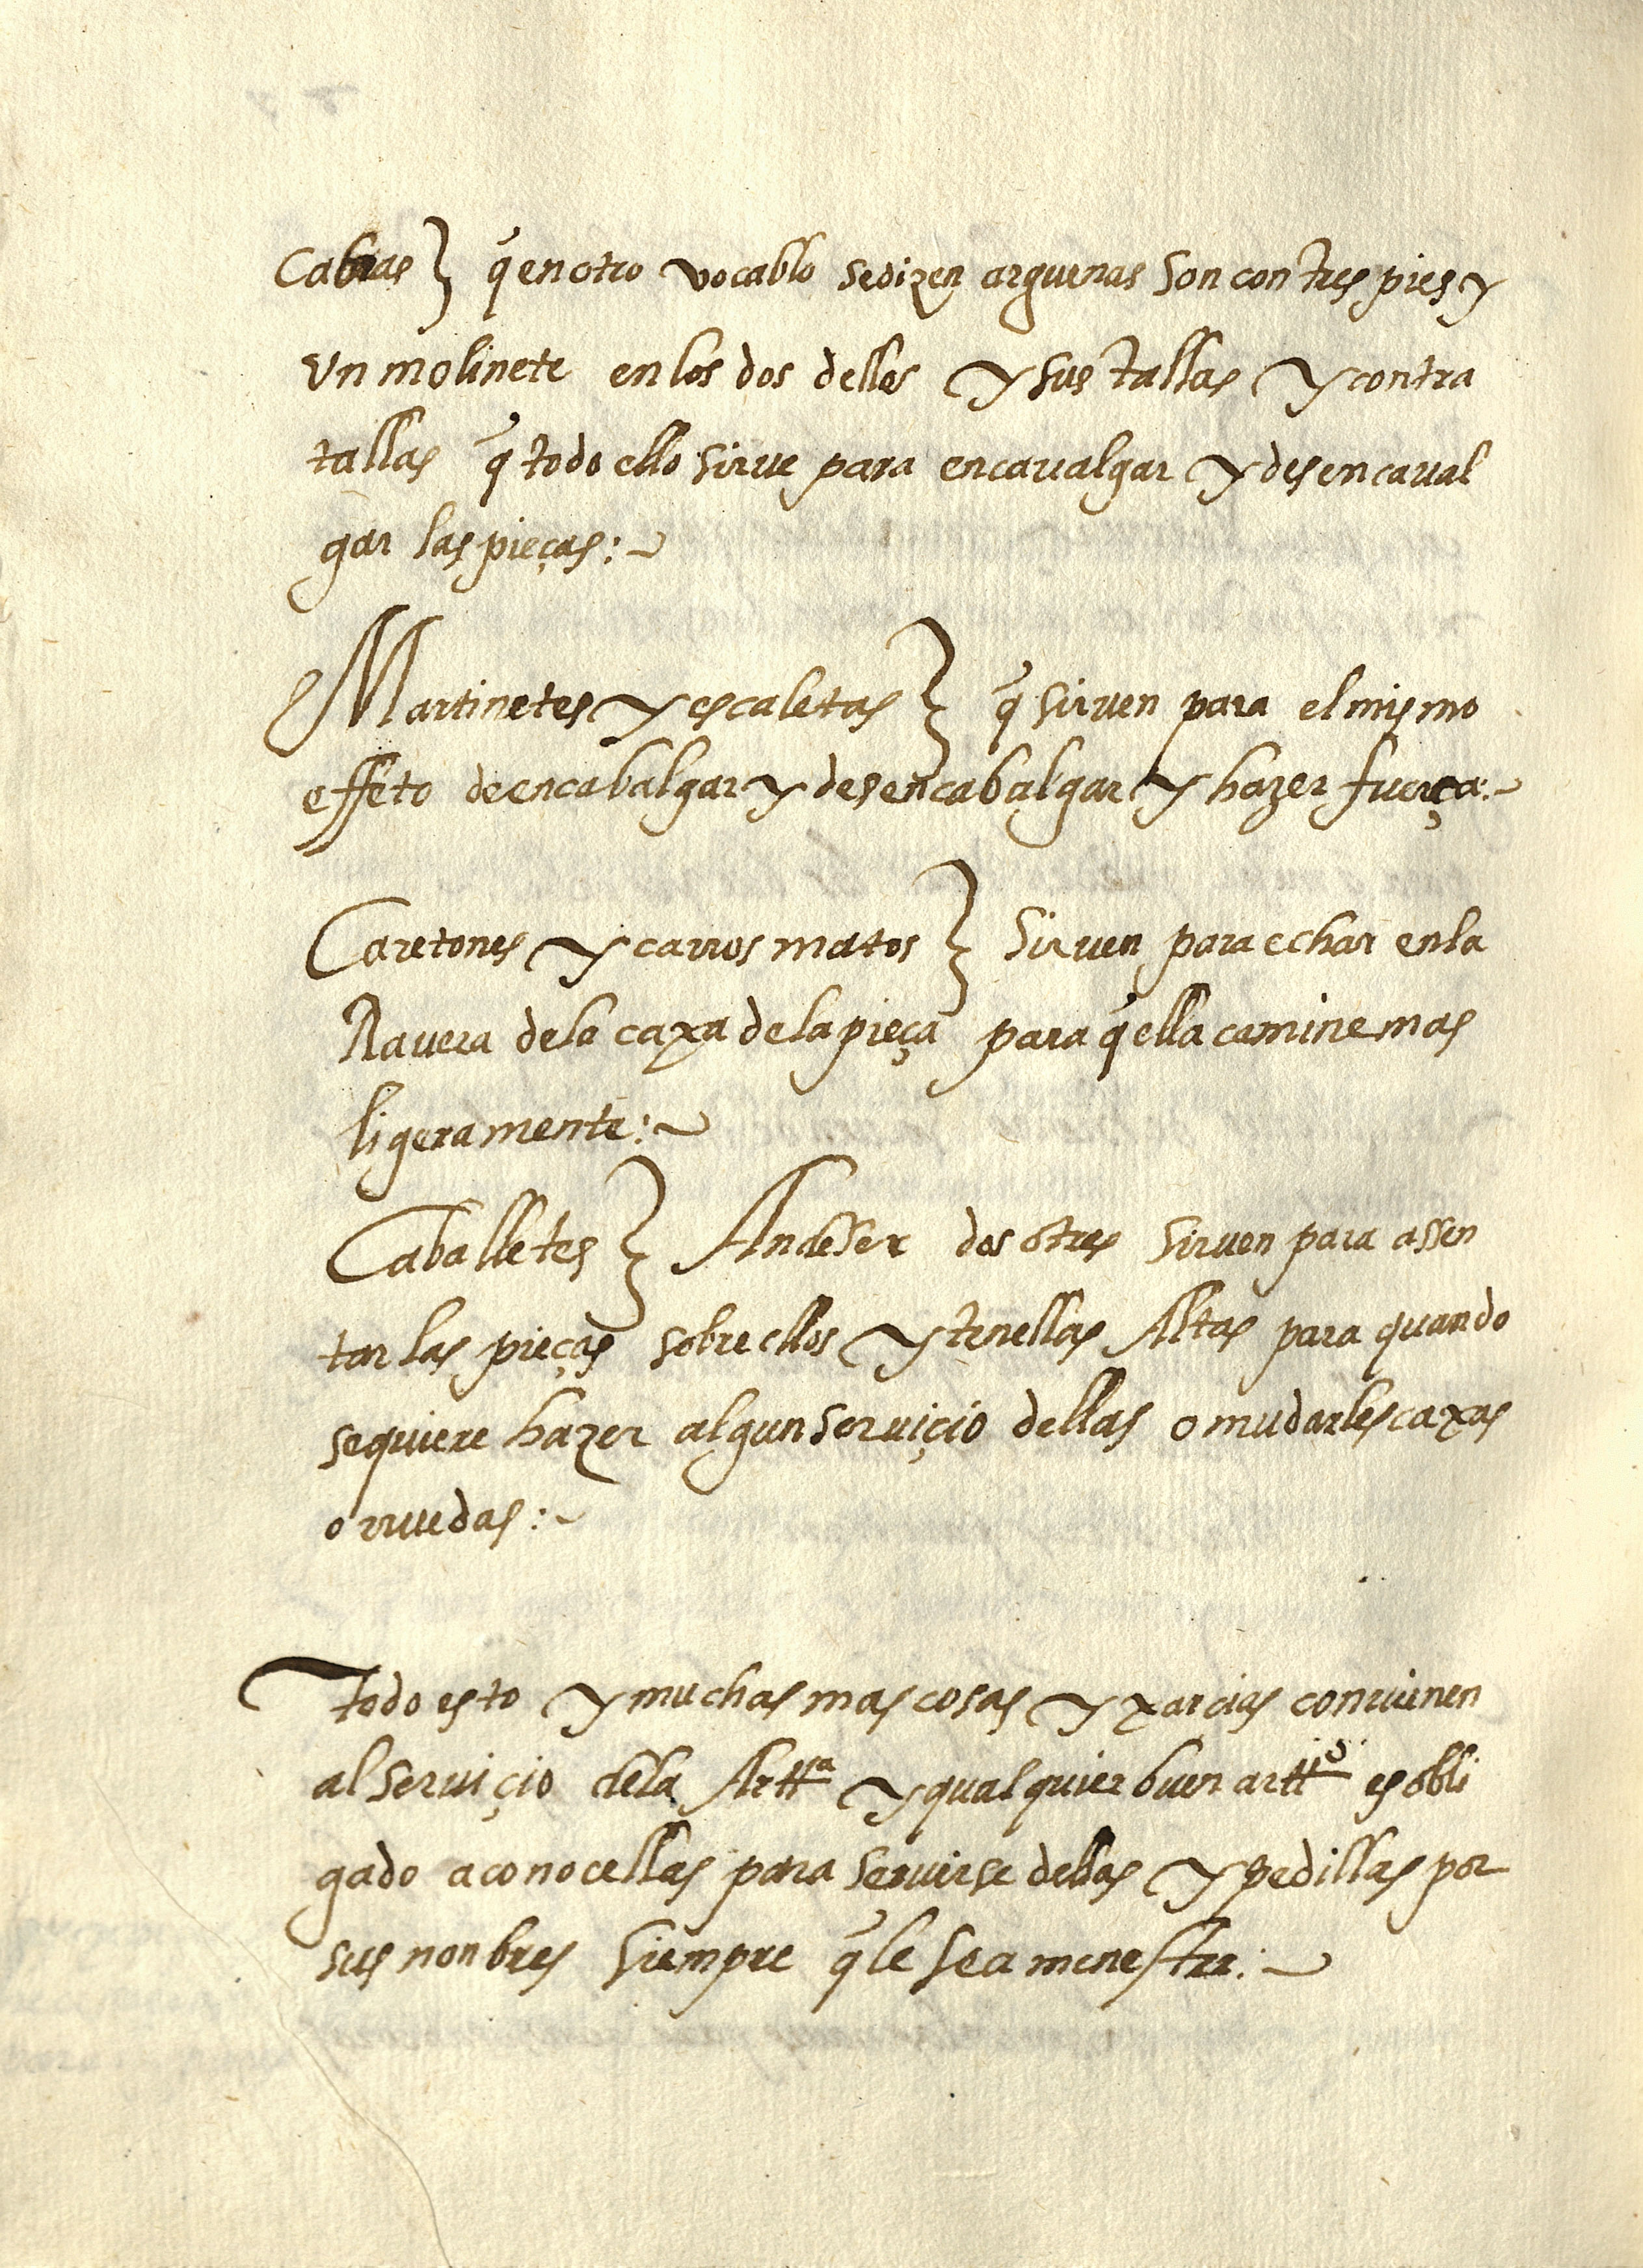 Cabras} q̃ en otro vocablo se dizen arguenas son con tres pies y
vn molinete en los dos dellos y sus tallas y contra
tallas q̃ todo ello sirue para encaualgar y desencaual
gar las pieças:~
Martinetes y escaletas} q̃ siruen para el mismo
effeto de encabalgar y desencabalgar y hazer fuerça:~
Caretones y carros matos} siruen para echar en la
Ravera de la caxa de la pieça para q̃ ella camine mas
ligeramente:~
Caballetes} An de ser dos o tres siruen para assen
tar las pieças sobre ellos y tenellas Altas para quando
se quiere hazer algun seruiçio dellas o mudarles caxas
o rruedas:~
todo esto y muchas mas cosas y xarcias conuienen
al seruiçio de la Artt.ª y qualquier buen artt.º es obli
gado a conocellas para seruirse dellas y pedillas por
sus nonbres siempre q̃ le sea menestre:~